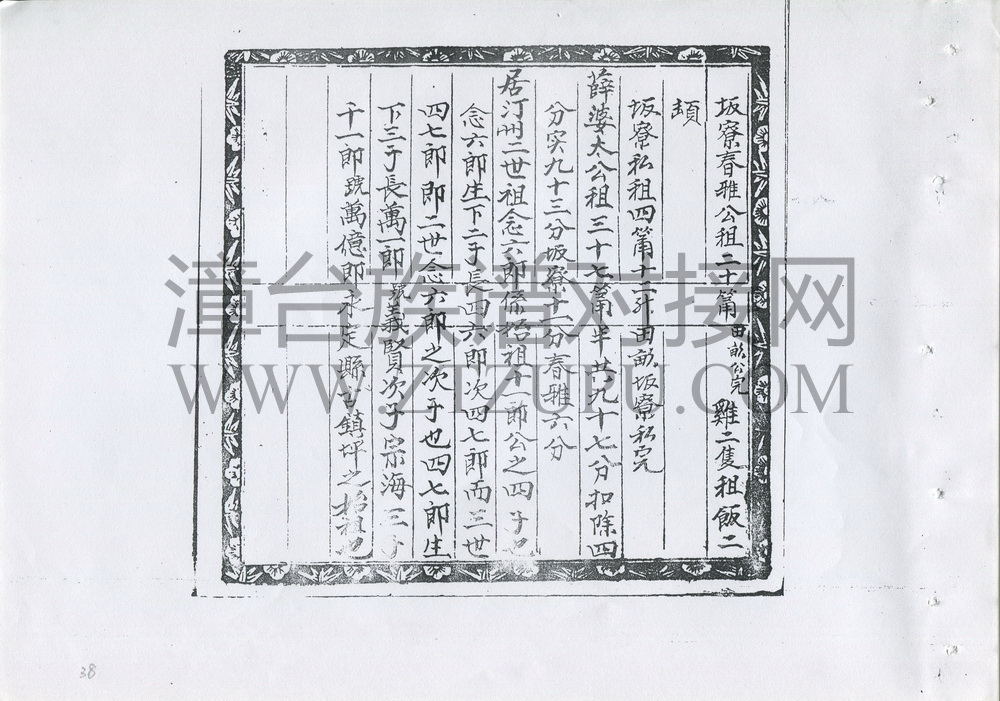 坂寮春雅公祖二十筩田畝公完雞二隻租飯二
頓
坂寮私祖四筩十二升田畝坂寮私完
薛婆太公祖三十七筩半共九十七分扣除四
分实九十三分坂寮十二分春雅六分
居汀州二世祖念六郎係始祖十一郎公之四子也
念六郎生下二子長四六郎次四七郎而三世
四七郎即二世念六郎之次子也四七郎生
下三子長萬一郎號義賢次子宗海三子
千一郎號萬億郎永定縣古鎮坪之始祖也
漳台族谱对接网
WWW.ZTZUPU.COM
38